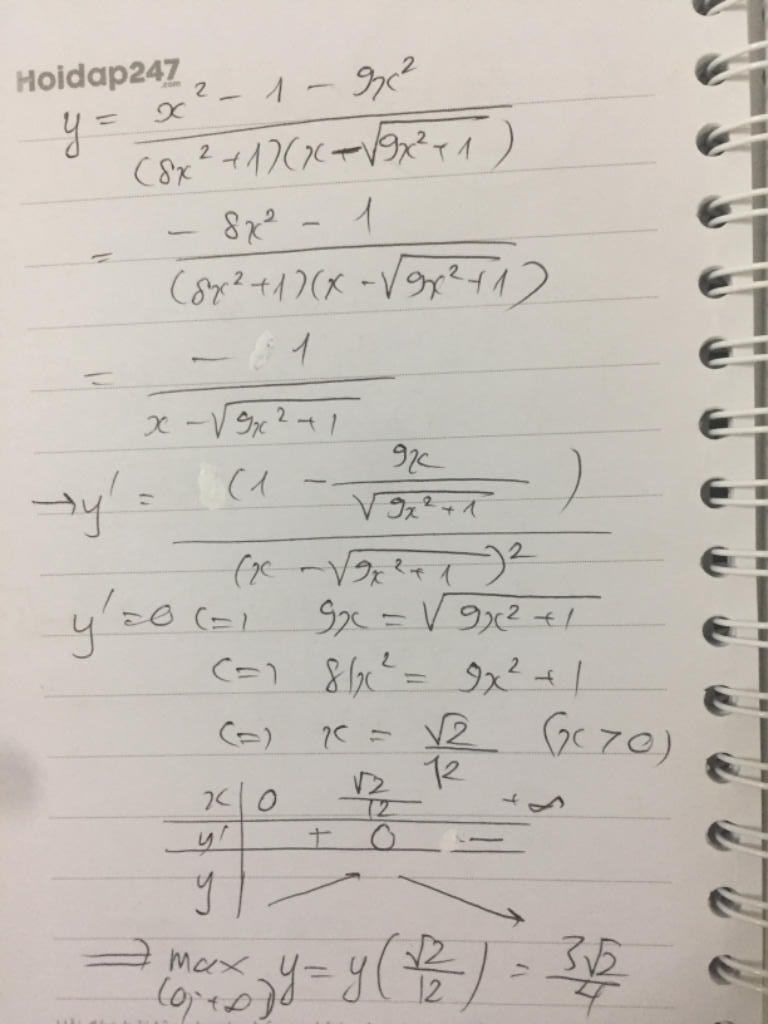 Hoidap247
.com
y = (x² - 1 - 9x²) / ((8x² + 1)(x - √(9x² + 1)))
= (- 8x² - 1) / ((8x² + 1)(x - √(9x² + 1)))
= (- 1) / (x - √(9x² + 1))
→ y' = (1 - 9x / √(9x² + 1)) / (x - √(9x² + 1))²
y' = 0 (=) 9x = √(9x² + 1)
(=) 81x² = 9x² + 1
(=) x = √2 / 12 (x > 0)
x 0 √2/12 +∞
y' + 0 -
y
⟹ max (0; +∞) y = y(√2 / 12) = 3√2 / 4